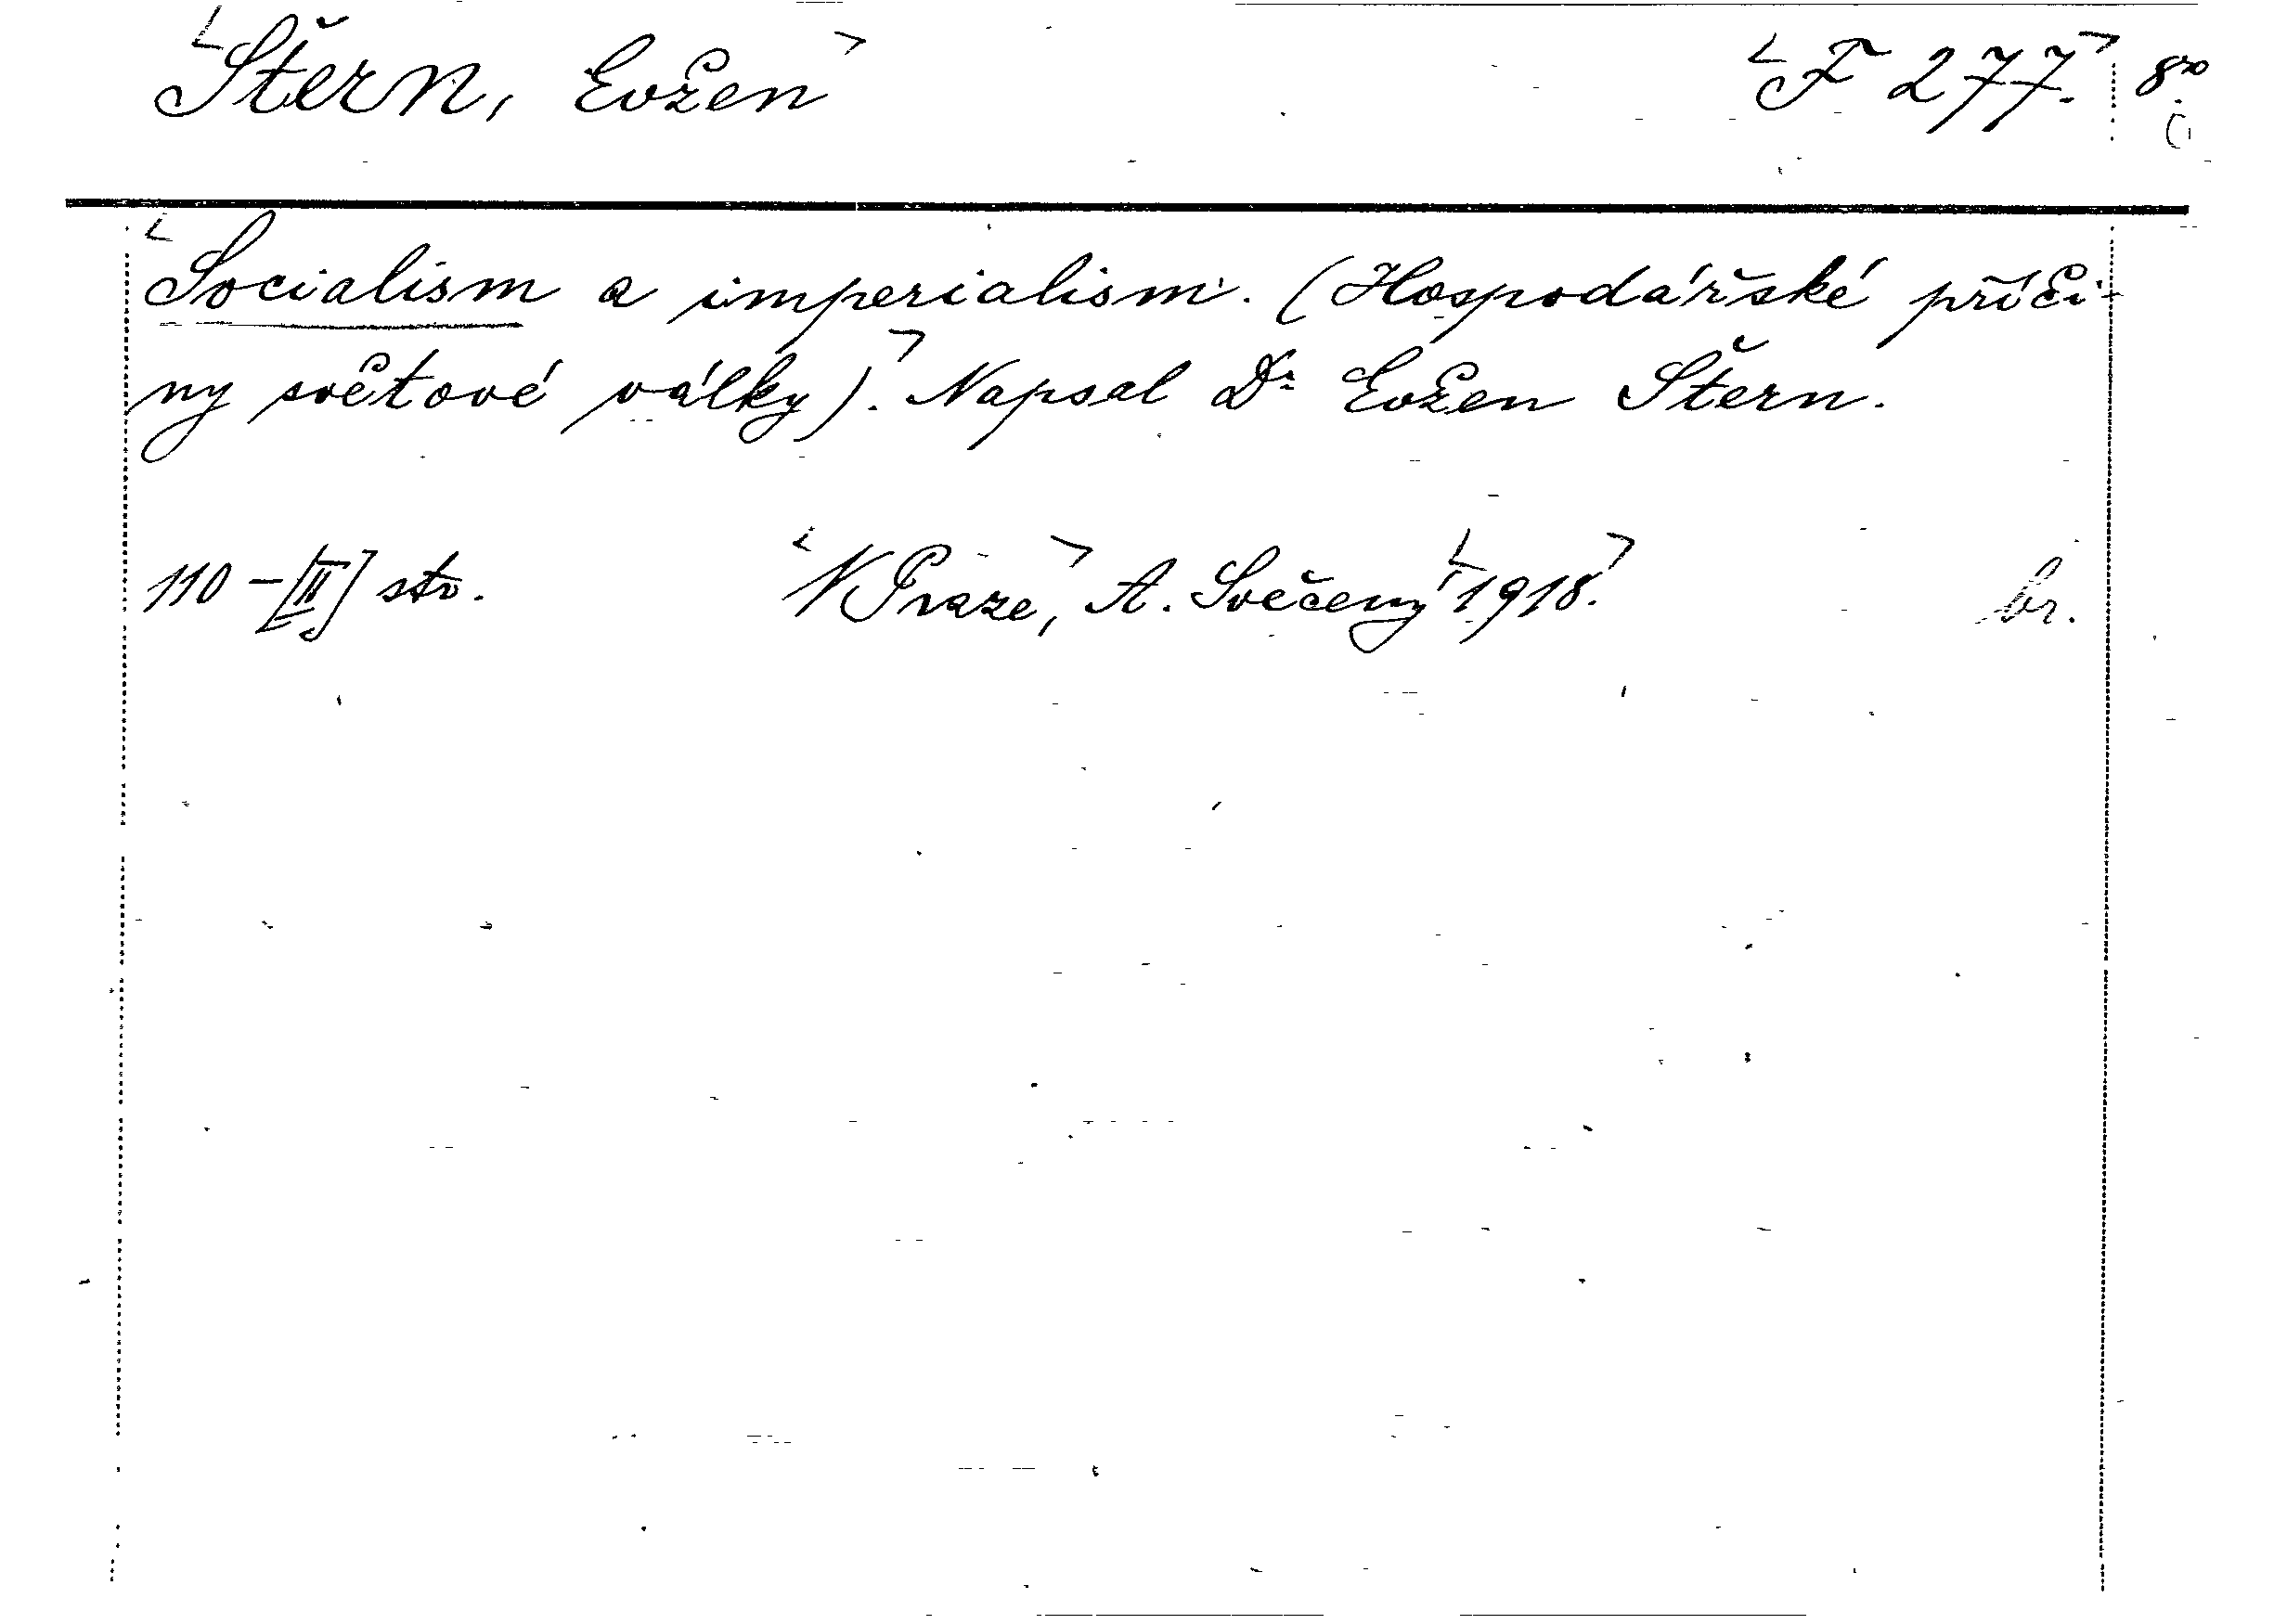 Štern, Evžen F 277. 8°.
Socialism a imperialism. (Hospodářské příči-
ny světové války). Napsal Dr Evžen Štern.
110 - [II] str. V Praze, A. Svěčený 1918. br.